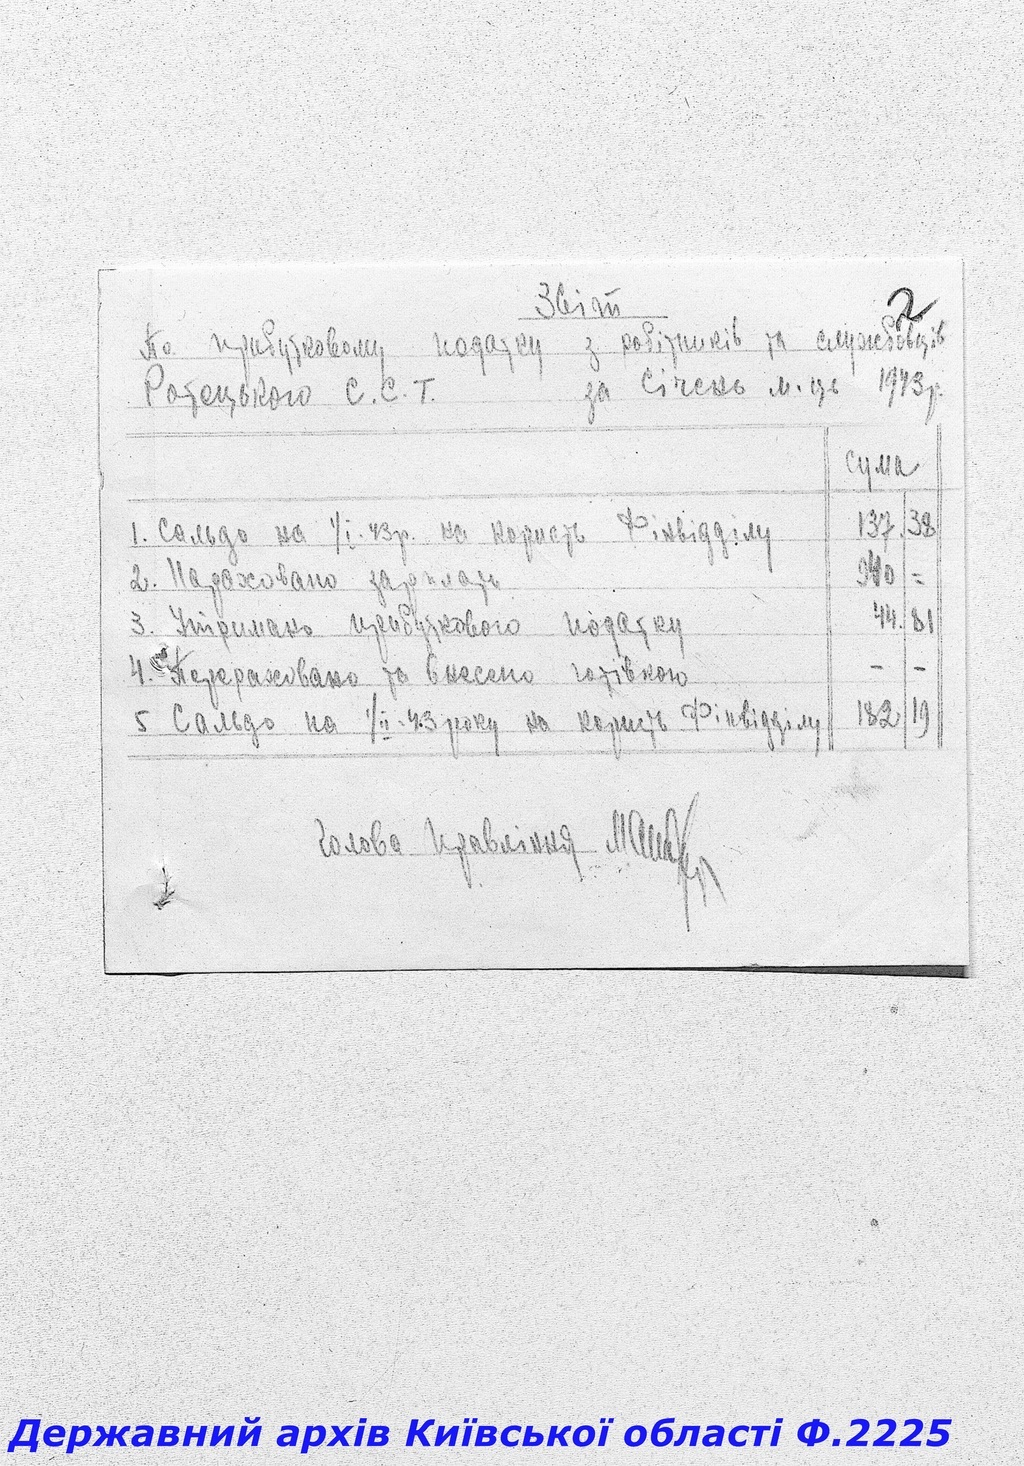 Звіт
2
По прибутковому податку з робітників та службовців
Ротецького С.С.Т. за Січень м-ць 1943 р.
Сума
1. Сальдо на 1/I.43р. на користь Фінвідділу 137.38
2. Нараховано зарплати 940 =
3. Утримано прибуткового податку 44.81
4. Перераховано та внесено готівкою - -
5 Сальдо на 1/II-43 року на користь Фінвідділу 182 19
Голова Правління
Державний архів Київської області Ф.2225